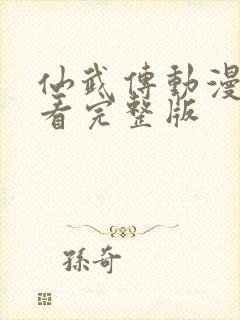 仙武傳動漫
看完整版
孫奇